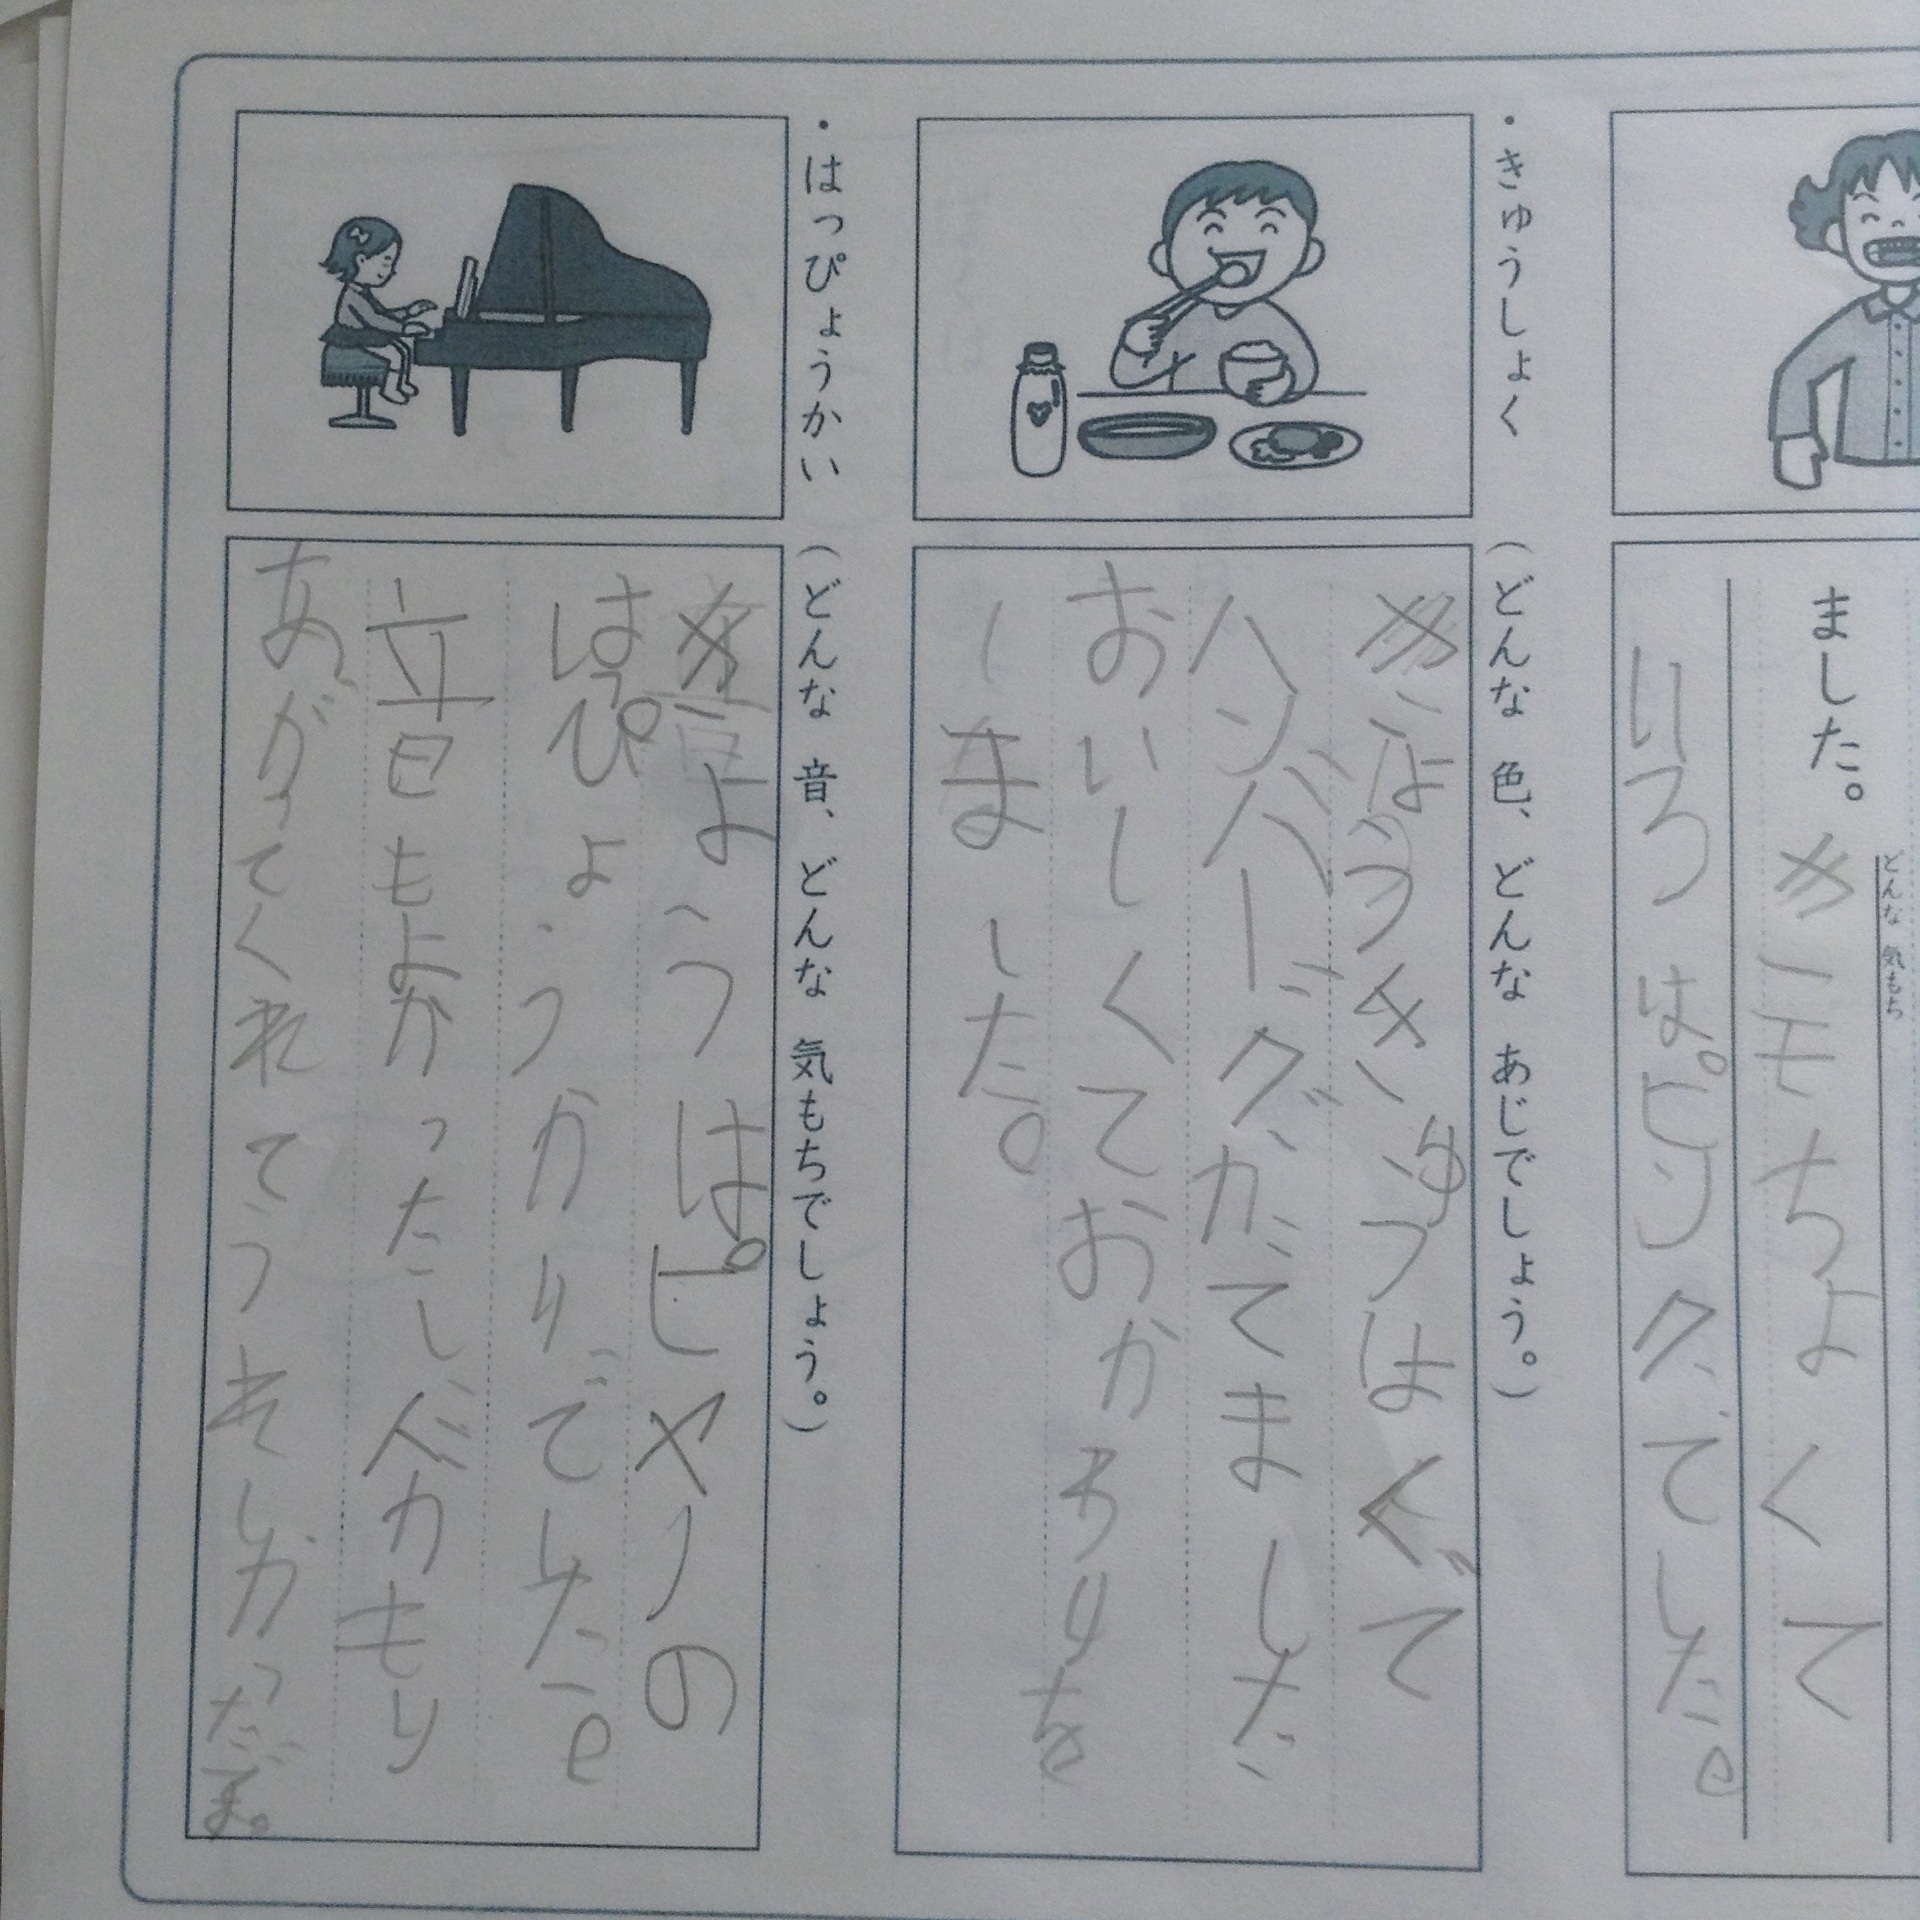 ました。きもちよくて
どんな 気もち
いろはピンクでした。
・きゅうしょく
(どんな 色、どんな あじでしょう。)
きょうきゅうはくで
ハンバーグがてました
おいしくておかわりを
しました。
・はっぴょうかい
(どんな 音、どんな 気もちでしょう。)
きょうはピヤノの
はぴょうかいでした。
音もよかったし
あがってくれてうれしかったです。